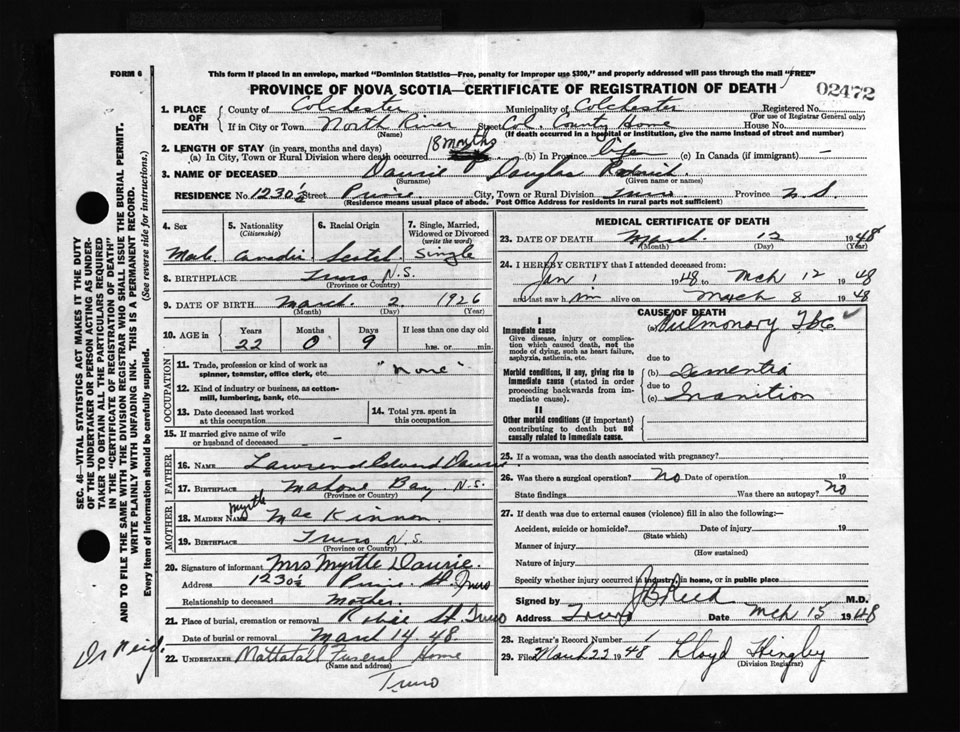 FORM 6
This form if placed in an envelope, marked "Dominion Statistics—Free, penalty for improper use $300," and properly addressed will pass through the mail "FREE"
PROVINCE OF NOVA SCOTIA—CERTIFICATE OF REGISTRATION OF DEATH
02472
1. PLACE OF DEATH
County of Colchester Municipality of Colchester Registered No.
(For use of Registrar General only)
If in City or Town North River Street Col. County Home House No.
(Name) (If death occurred in a hospital or institution, give the name instead of street and number)
2. LENGTH OF STAY (in years, months and days)
(a) In City, Town or Rural Division where death occurred 18 months (b) In Province (c) In Canada (if immigrant) —
3. NAME OF DECEASED Daurie Douglas Roderick
(Surname) (Given name or names)
RESIDENCE No. 1230½ Street Prince City, Town or Rural Division Truro Province N.S.
(Residence means usual place of abode. Post Office Address for residents in rural parts not sufficient)
4. Sex
5. Nationality (Citizenship)
6. Racial Origin
7. Single, Married, Widowed or Divorced (write the word)
Male Canadian Scotch Single
8. BIRTHPLACE Truro N.S.
(Province or Country)
9. DATE OF BIRTH March 2 1926
(Month) (Day) (Year)
10. AGE in Years Months Days If less than one day old
22 0 9 hrs. or min.
OCCUPATION
11. Trade, profession or kind of work as spinner, teamster, office clerk, etc. "None"
12. Kind of industry or business, as cotton-mill, lumbering, bank, etc.
13. Date deceased last worked at this occupation
14. Total yrs. spent in this occupation
15. If married give name of wife or husband of deceased —
FATHER
16. NAME Edward Daurie
17. BIRTHPLACE Mahone Bay, N.S.
(Province or Country)
MOTHER
18. MAIDEN NAME Myrtle MacKinnon
19. BIRTHPLACE Truro N.S.
(Province or Country)
20. Signature of informant Mrs Myrtle Daurie
Address 1230½ Prince St. Truro
Relationship to deceased Mother
21. Place of burial, cremation or removal Robie St Truro
Date of burial or removal March 14 48.
22. UNDERTAKER Mattatall Funeral Home
(Name and address)
Truro
Dr Reid.
MEDICAL CERTIFICATE OF DEATH
23. DATE OF DEATH March 12 1948
(Month) (Day) (Year)
24. I HEREBY CERTIFY that I attended deceased from:
Jan 1 1948 to Mch 12 1948
and last saw him alive on March 8 1948
CAUSE OF DEATH
I
Immediate cause
Give disease, injury or complication which caused death, not the mode of dying, such as heart failure, asphyxia, asthenia, etc.
(a) Pulmonary Tbc
due to
Morbid conditions, if any, giving rise to immediate cause (stated in order proceeding backwards from immediate cause).
(b) Dementia
due to
(c) Inanition
II
Other morbid conditions (if important) contributing to death but not causally related to immediate cause.
25. If a woman, was the death associated with pregnancy?
26. Was there a surgical operation? No Date of operation 19
State findings Was there an autopsy? no
27. If death was due to external causes (violence) fill in also the following:—
Accident, suicide or homicide? Date of injury 19
(State which)
Manner of injury
(How sustained)
Nature of injury
Specify whether injury occurred in industry, in home, or in public place
Signed by J B Reid M.D.
Address Truro Date Mch 15 1948
28. Registrar's Record Number 1
29. Filed March 22 1948 Lloyd Hingley
(Division Registrar)
SEC. 46—VITAL STATISTICS ACT MAKES IT THE DUTY
OF THE UNDERTAKER OR PERSON ACTING AS UNDER-
TAKER TO OBTAIN ALL THE PARTICULARS REQUIRED
IN THE "CERTIFICATE OF REGISTRATION OF DEATH"
AND TO FILE THE SAME WITH THE DIVISION REGISTRAR WHO SHALL ISSUE THE BURIAL PERMIT.
WRITE PLAINLY WITH UNFADING INK. THIS IS A PERMANENT RECORD.
Every item of information should be carefully supplied. (See reverse side for instructions.)